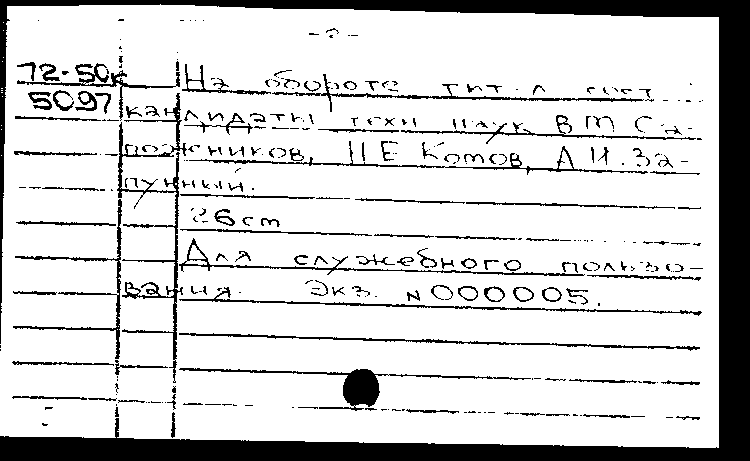 - 2 -
72-50к На обороте тит. л. сост.
5097 кандидаты техн наук В М Са-
пожников, П Е Котов, А И. За-
пунный.
26 cm
Для служебного пользо-
вания. Экз. N 000005.